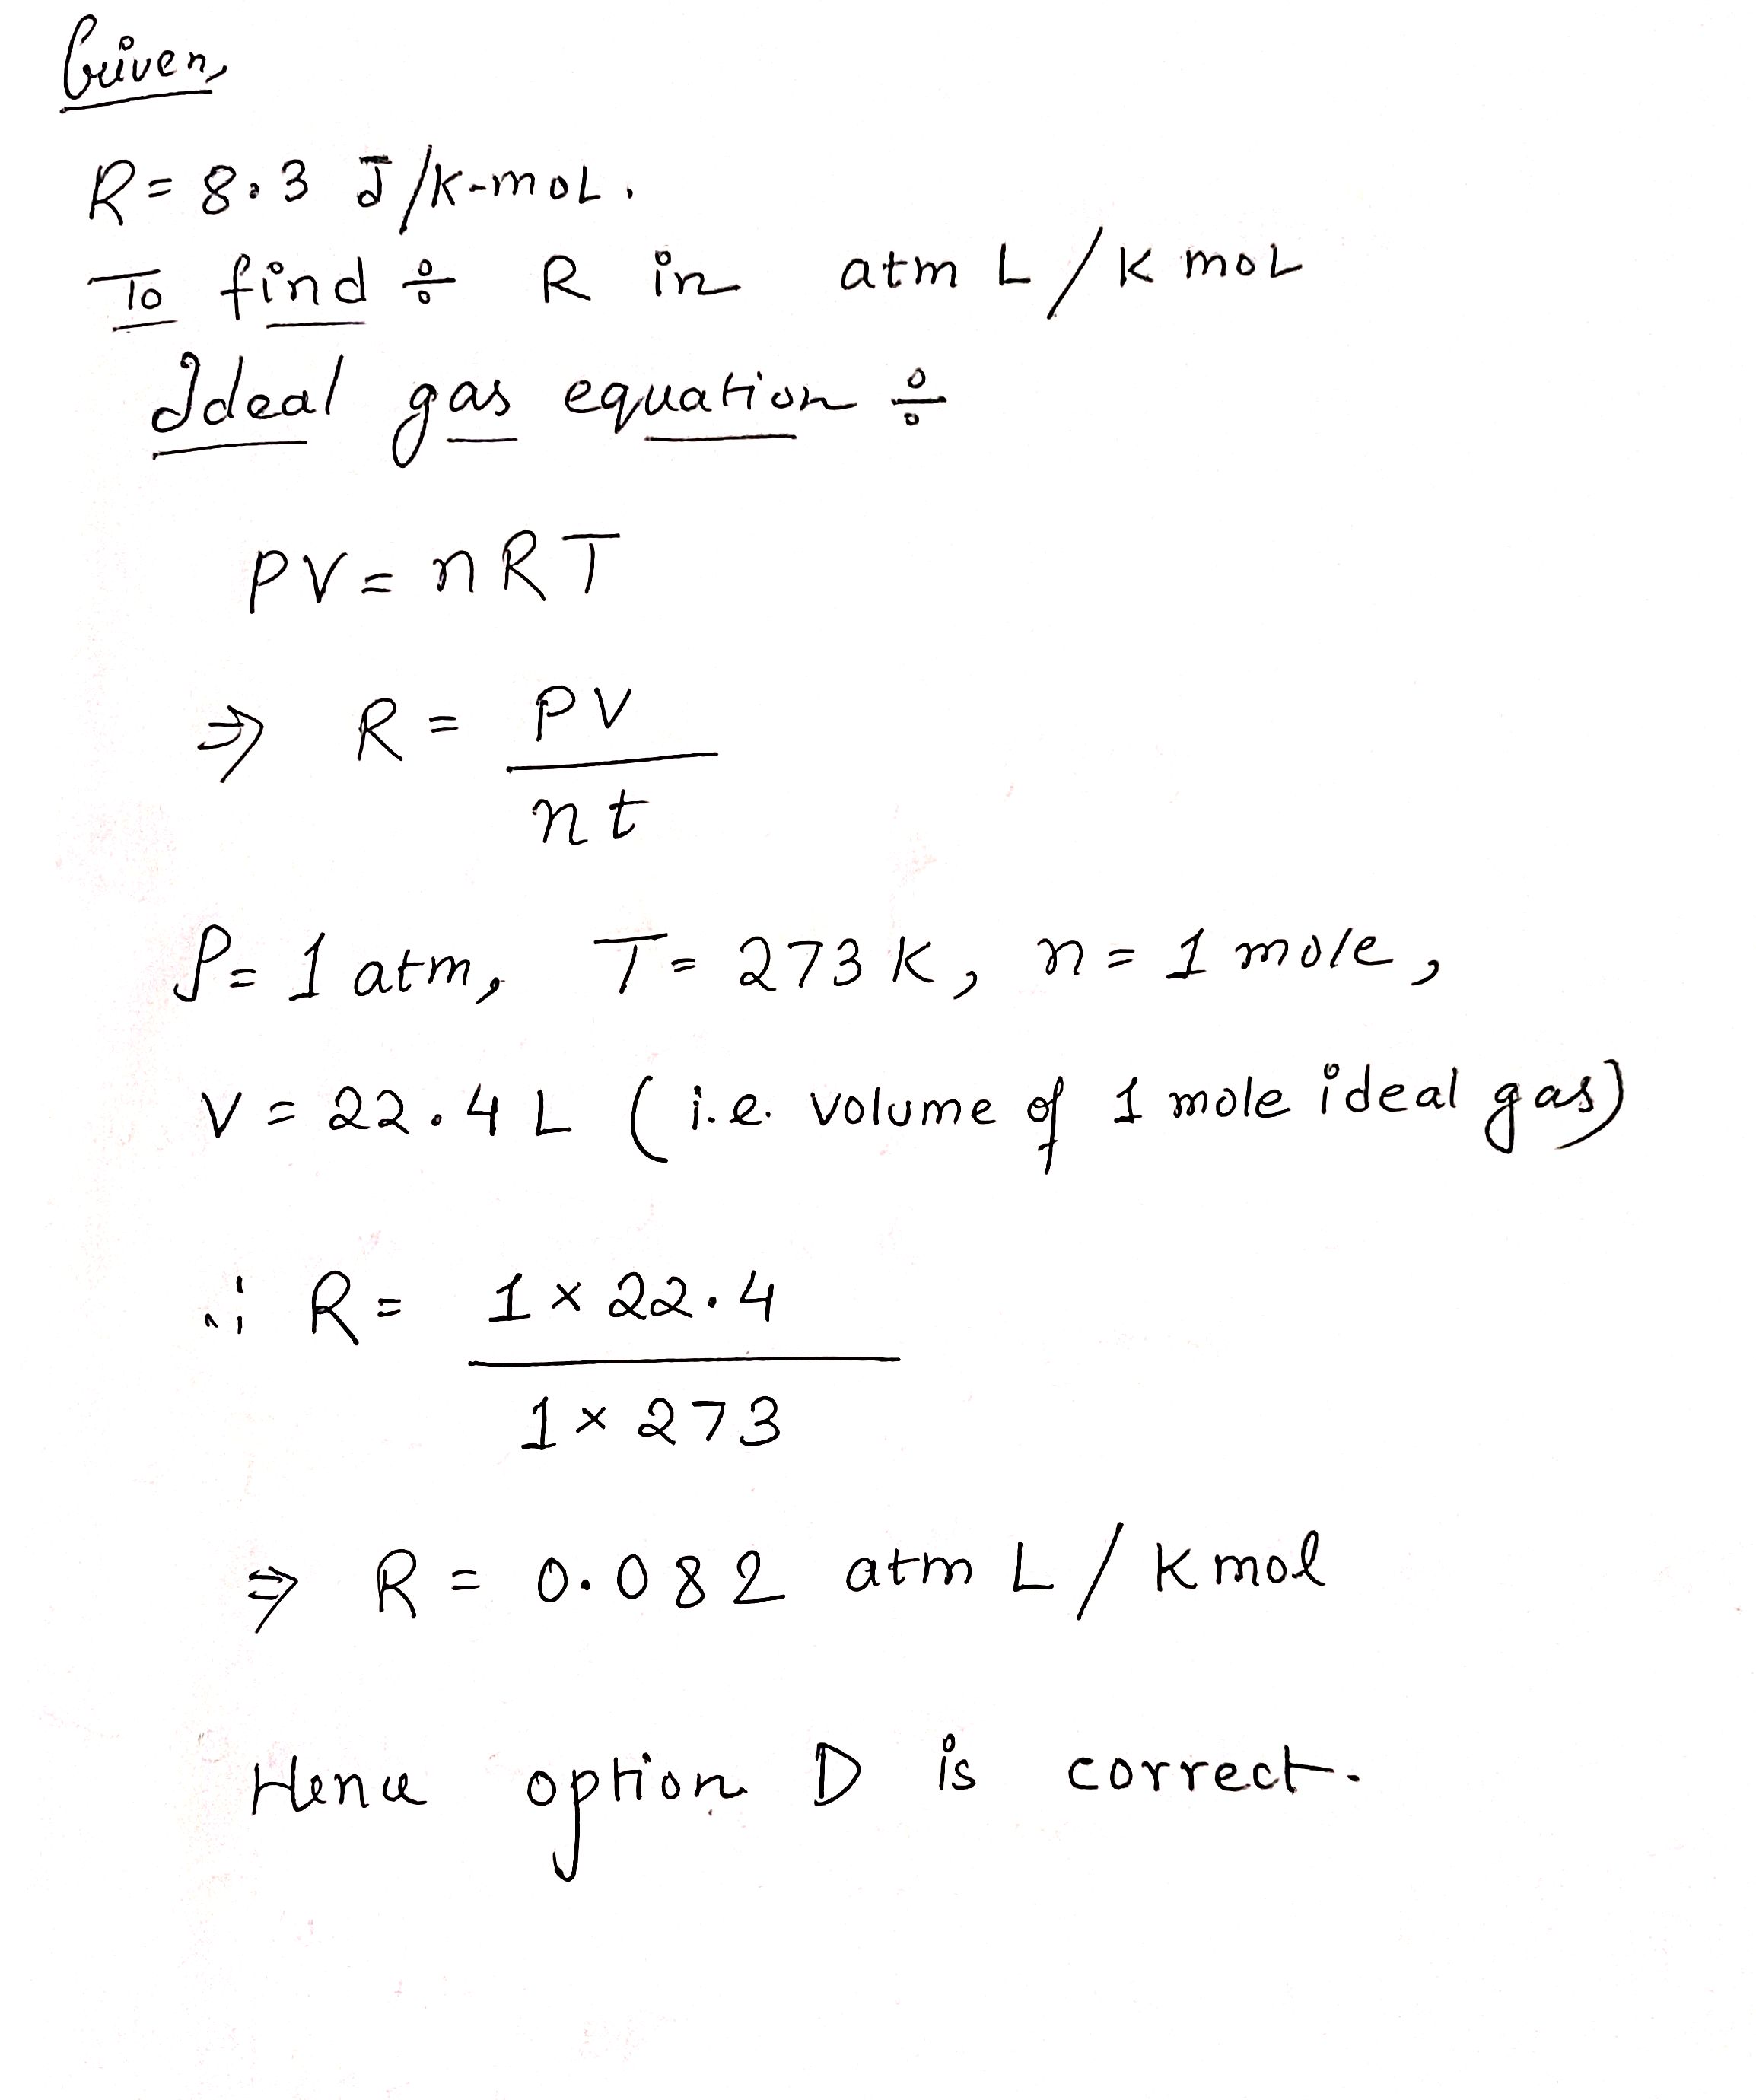 Given,
R = 8.3 J/K-mol.
To find ÷ R in atm L / K mol
Ideal gas equation ÷
PV = nRT
⇒ R = PV
nt
P = 1 atm, T = 273 K, n = 1 mole,
V = 22.4 L (i.e. volume of 1 mole ideal gas)
∴ R = 1 × 22.4
1 × 273
⇒ R = 0.082 atm L / K mol
Hence option D is correct.